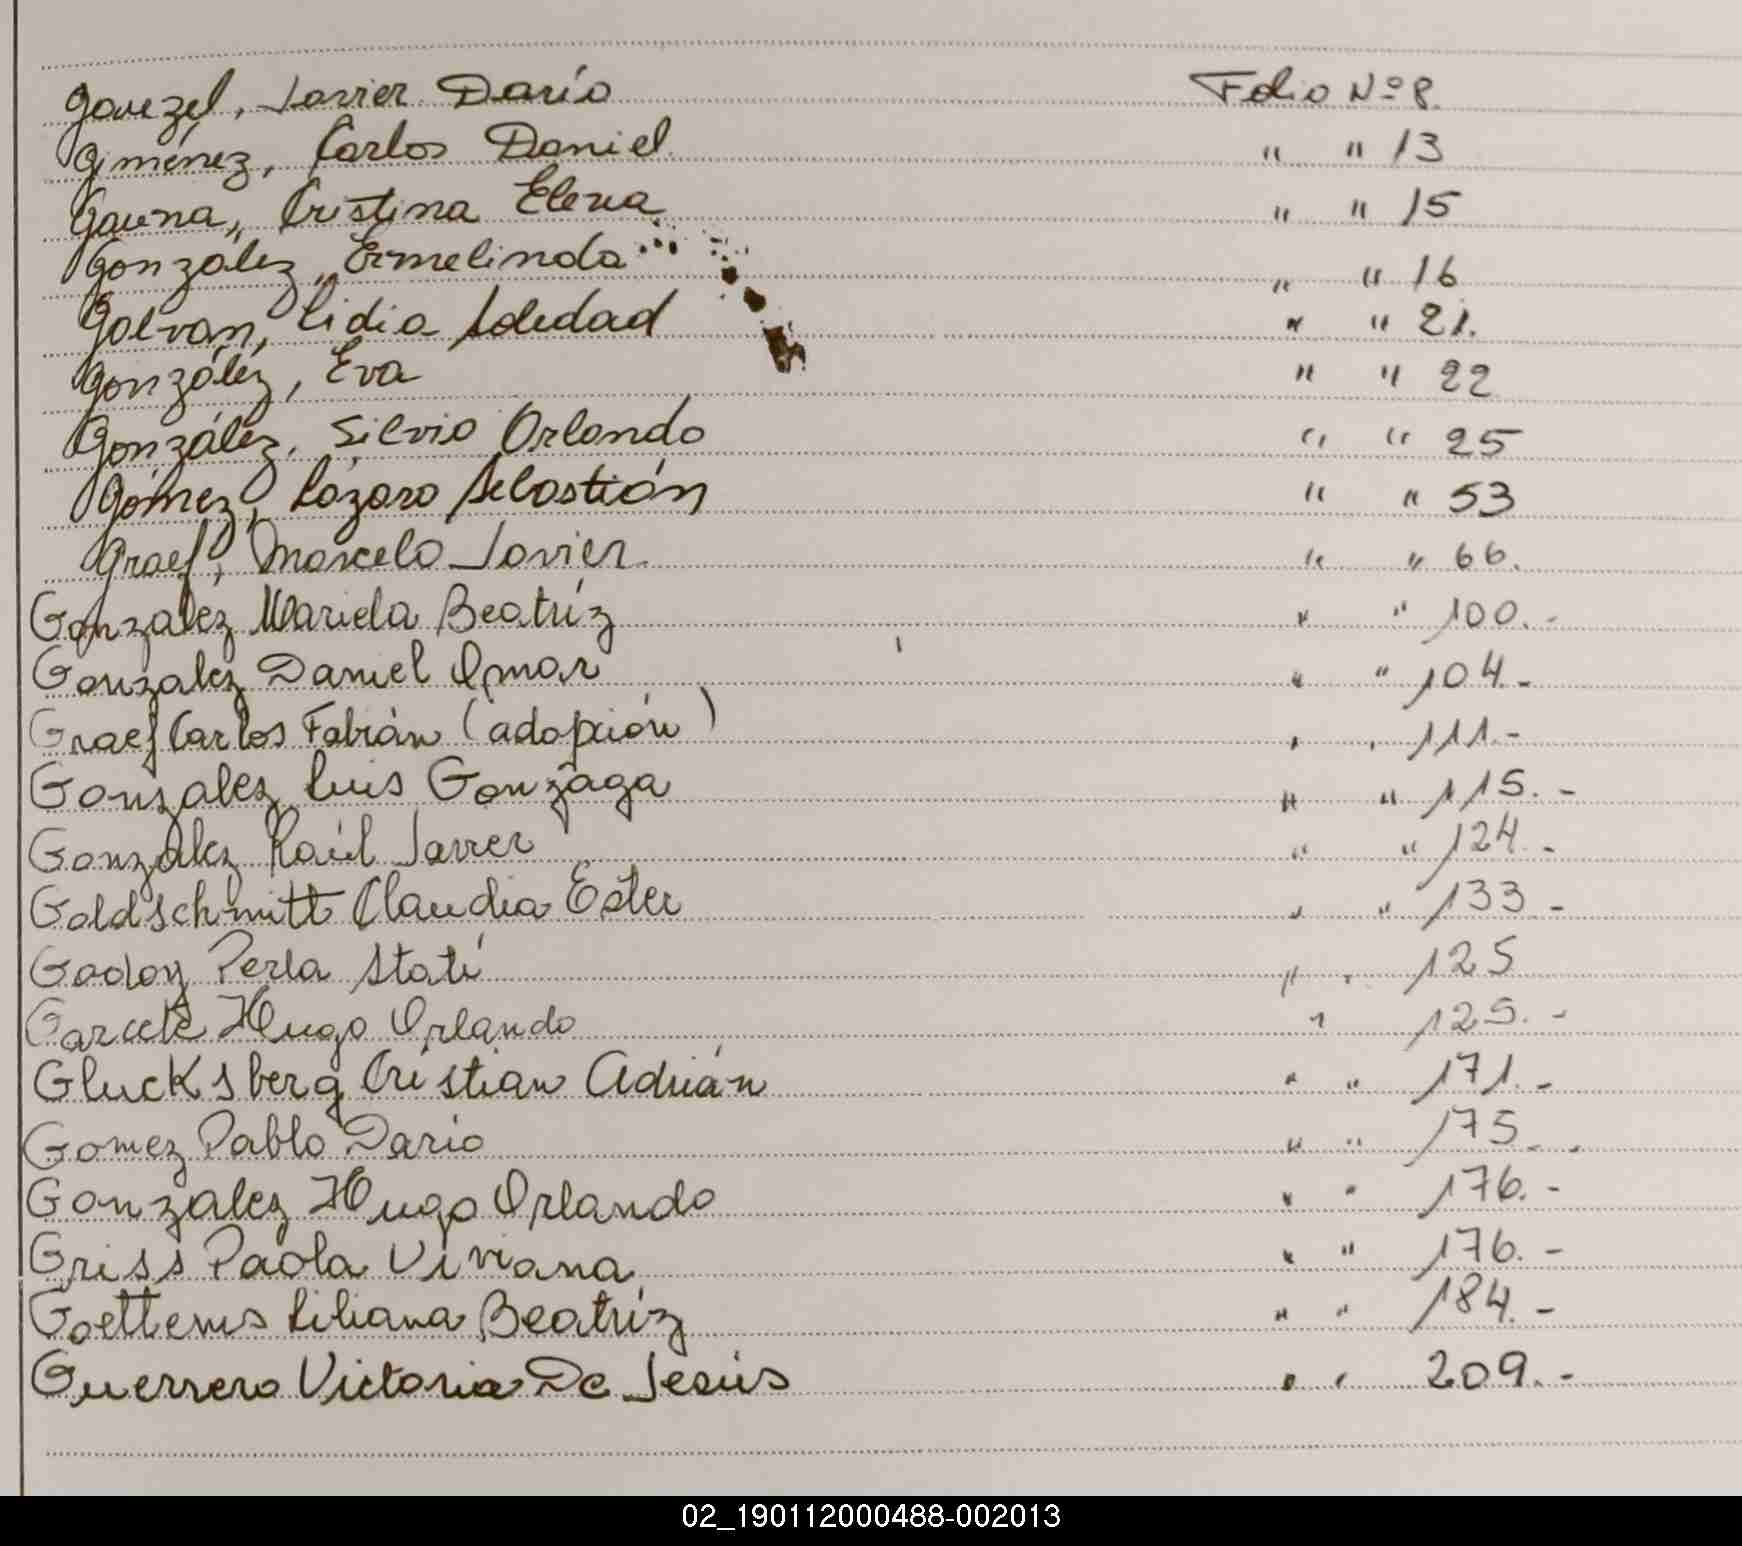 Gauezel, Javier Darío Folio Nº 8.
Giménez, Carlos Daniel " " 13
Gauna, Cristina Elena " " 15
González, Ermelinda " " 16
Galvan, Lidia Soledad " " 21.
González, Eva " " 22
González, Silvio Orlando " " 25
Gómez, Lázaro Sebastián " " 53
Graef, Marcelo Javier. " " 66.
Gonzalez Mariela Beatríz " " 100.-
Gonzalez Daniel Omar " " 104.-
Graef Carlos Fabián (adopción) " " 111.-
Gonzalez Luis Gonzaga " " 115.-
Gonzalez Raúl Javier " " 124.-
Goldschmitt Claudia Ester " " 133-
Godoy Perla Itatí " " 125
Garcete Hugo Orlando " 125.-
Glucksberg Cristian Adrián " " 171.-
Gomez Pablo Dario " " 175.-
Gonzalez Hugo Orlando " " 176.-
Griss Paola Viviana " " 176.-
Goettems Liliana Beatríz " " 184.-
Guerrero Victoria De Jesús " " 209.-
02_190112000488-002013